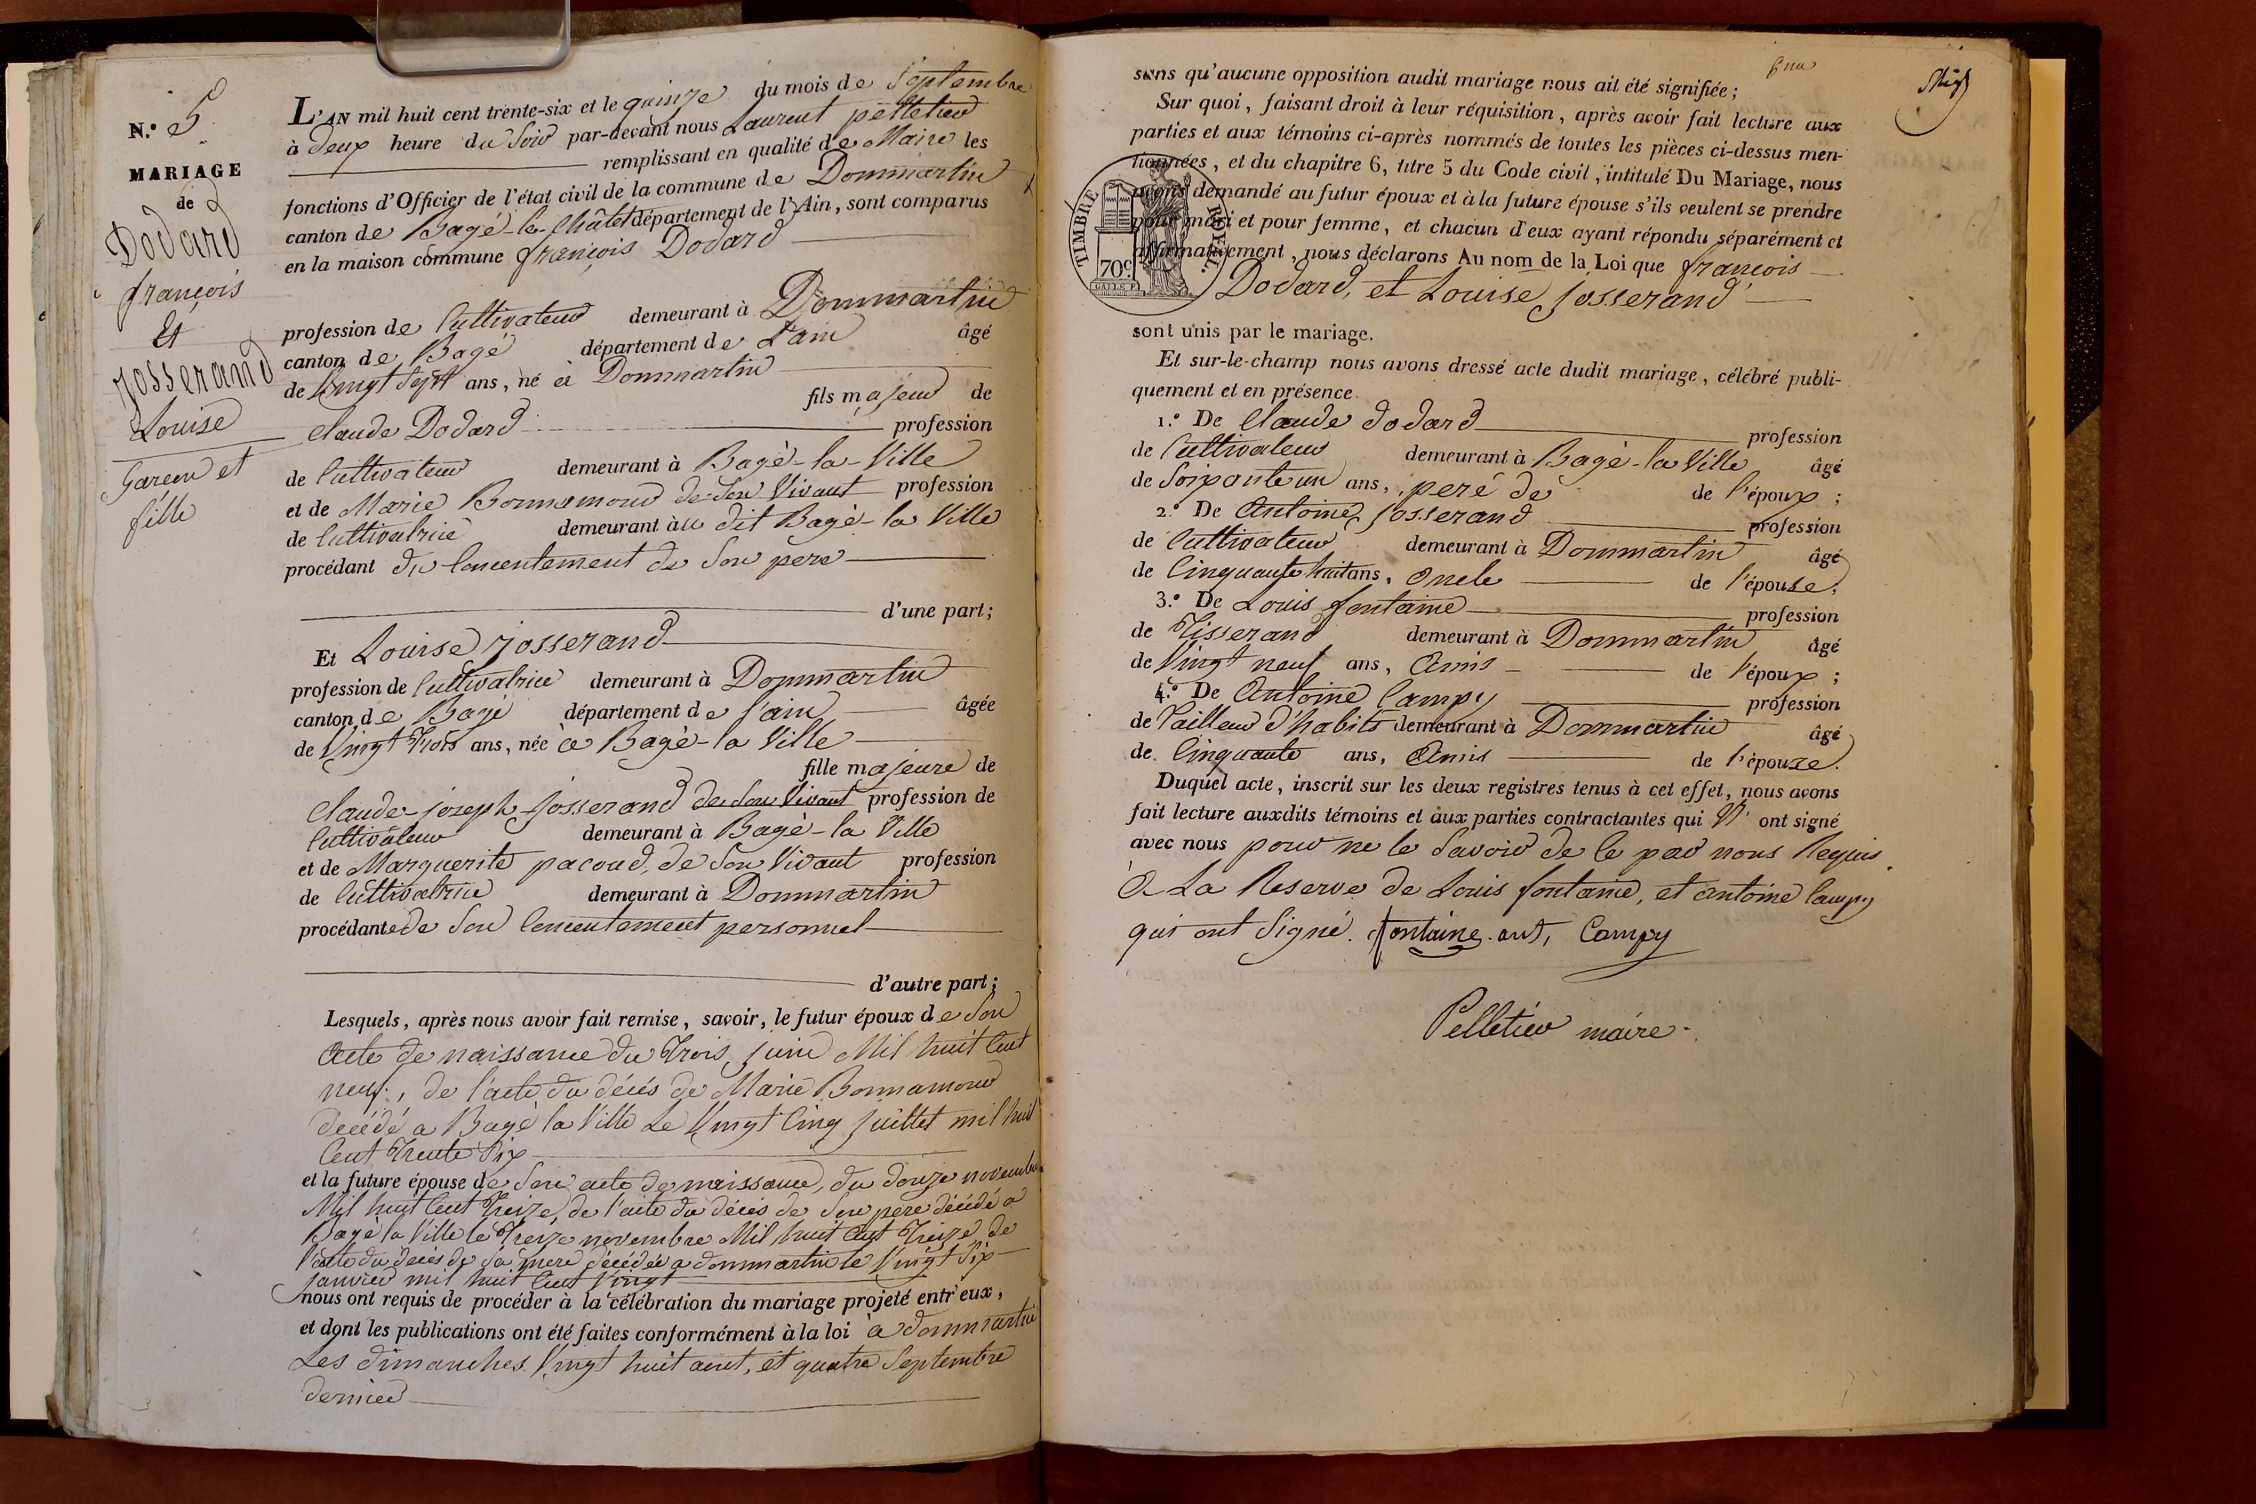 N.º 5
MARIAGE
de
Dodard
françois
Et
Josserand
Louise
Garcon et
fille
L'AN mil huit cent trente-six et le quinze du mois de Septembre
à deux heure du Soir par-devant nous Laurent pelletier
remplissant en qualité de Maire les
fonctions d'Officier de l'état civil de la commune de Dommartin
canton de Bagé-le-Châtel département de l'Ain, sont comparus
en la maison commune françois Dodard
profession de Cultivateur demeurant à Dommartin
canton de Bagé département de L'ain âgé
de Vingt Sept ans, né à Dommartin
fils majeur de
Claude Dodard profession
de Cultivateur demeurant à Bagé-la-Ville
et de Marie Bonnamour de Son Vivant profession
de Cultivatrice demeurant au dit Bagé-la Ville
procédant du Concentement de Son pere
d'une part;
Et Louise Josserand
profession de Cultivatrice demeurant à Dommartin
canton de Bagé département de l'ain âgée
de Vingt Trois ans, née à Bagé-la Ville
fille majeure de
Claude-joseph-Josserand de Son Vivant profession de
Cultivateur demeurant à Bagé-la Ville
et de Marguerite pacoud, de Son Vivant profession
de Cultivatrice demeurant à Dommartin
procédante de Son Concentement personnel
d'autre part;
Lesquels, après nous avoir fait remise, savoir, le futur époux de Son
acte de naissance du Trois juin Mil huit Cent
neuf, de l'acte du décés de Marie Bonnamour
décédé a Bagé la Ville Le Vingt Cinq juillet mil huit
Cent Trente Six
et la future épouse de Son acte de naissance, du douze novembre
Mil huit Cent Treize, de l'acte du décés de Son pere décédé a
Bagé la Ville le Treize novembre Mil huit Cent Treize de
l'acte du décés de sa mere décédée a dommartin le Vingt Six
janvier mil huit Cent Vingt
nous ont requis de procéder à la célébration du mariage projeté entr'eux,
et dont les publications ont été faites conformément à la loi à dommartin
Les dimanches Vingt huit aout, et quatre Septembre
dernier
sans qu'aucune opposition audit mariage nous ait été signifiée;
Sur quoi, faisant droit à leur réquisition, après avoir fait lecture aux
parties et aux témoins ci-après nommés de toutes les pièces ci-dessus men-
tionnées, et du chapitre 6, titre 5 du Code civil, intitulé Du Mariage, nous
avons demandé au futur époux et à la future épouse s'ils veulent se prendre
pour mari et pour femme, et chacun d'eux ayant répondu séparément et
affirmativement, nous déclarons Au nom de la Loi que françois
Dodard, et Louise Josserand
TIMBRE ROYAL.
70c
sont unis par le mariage.
Et sur-le-champ nous avons dressé acte dudit mariage, célébré publi-
quement et en présence
1.º De Claude Dodard profession
de Cultivateur demeurant à Bagé-la Ville âgé
de Soixante un ans, peré de de l'époux;
2.º De Antoine Josserand profession
de Cultivateur demeurant à Dommartin âgé
de Cinquante huit ans, oncle de l'épouse;
3.º De Louis fontaine profession
de Tisserand demeurant à Dommartin âgé
de Vingt neuf ans, Amis de l'époux;
4.º De Antoine Campy profession
de Tailleur d'habits demeurant à Dommartin âgé
de Cinquante ans, Amis de l'épouse.
Duquel acte, inscrit sur les deux registres tenus à cet effet, nous avons
fait lecture auxdits témoins et aux parties contractantes qui N' ont signé
avec nous pour ne le Savoir de Ce par nous Requis
A La Reserve de Louis fontaine, et antoine Campy
qui ont Signé. fontaine ant, Campy
Pelletier maire